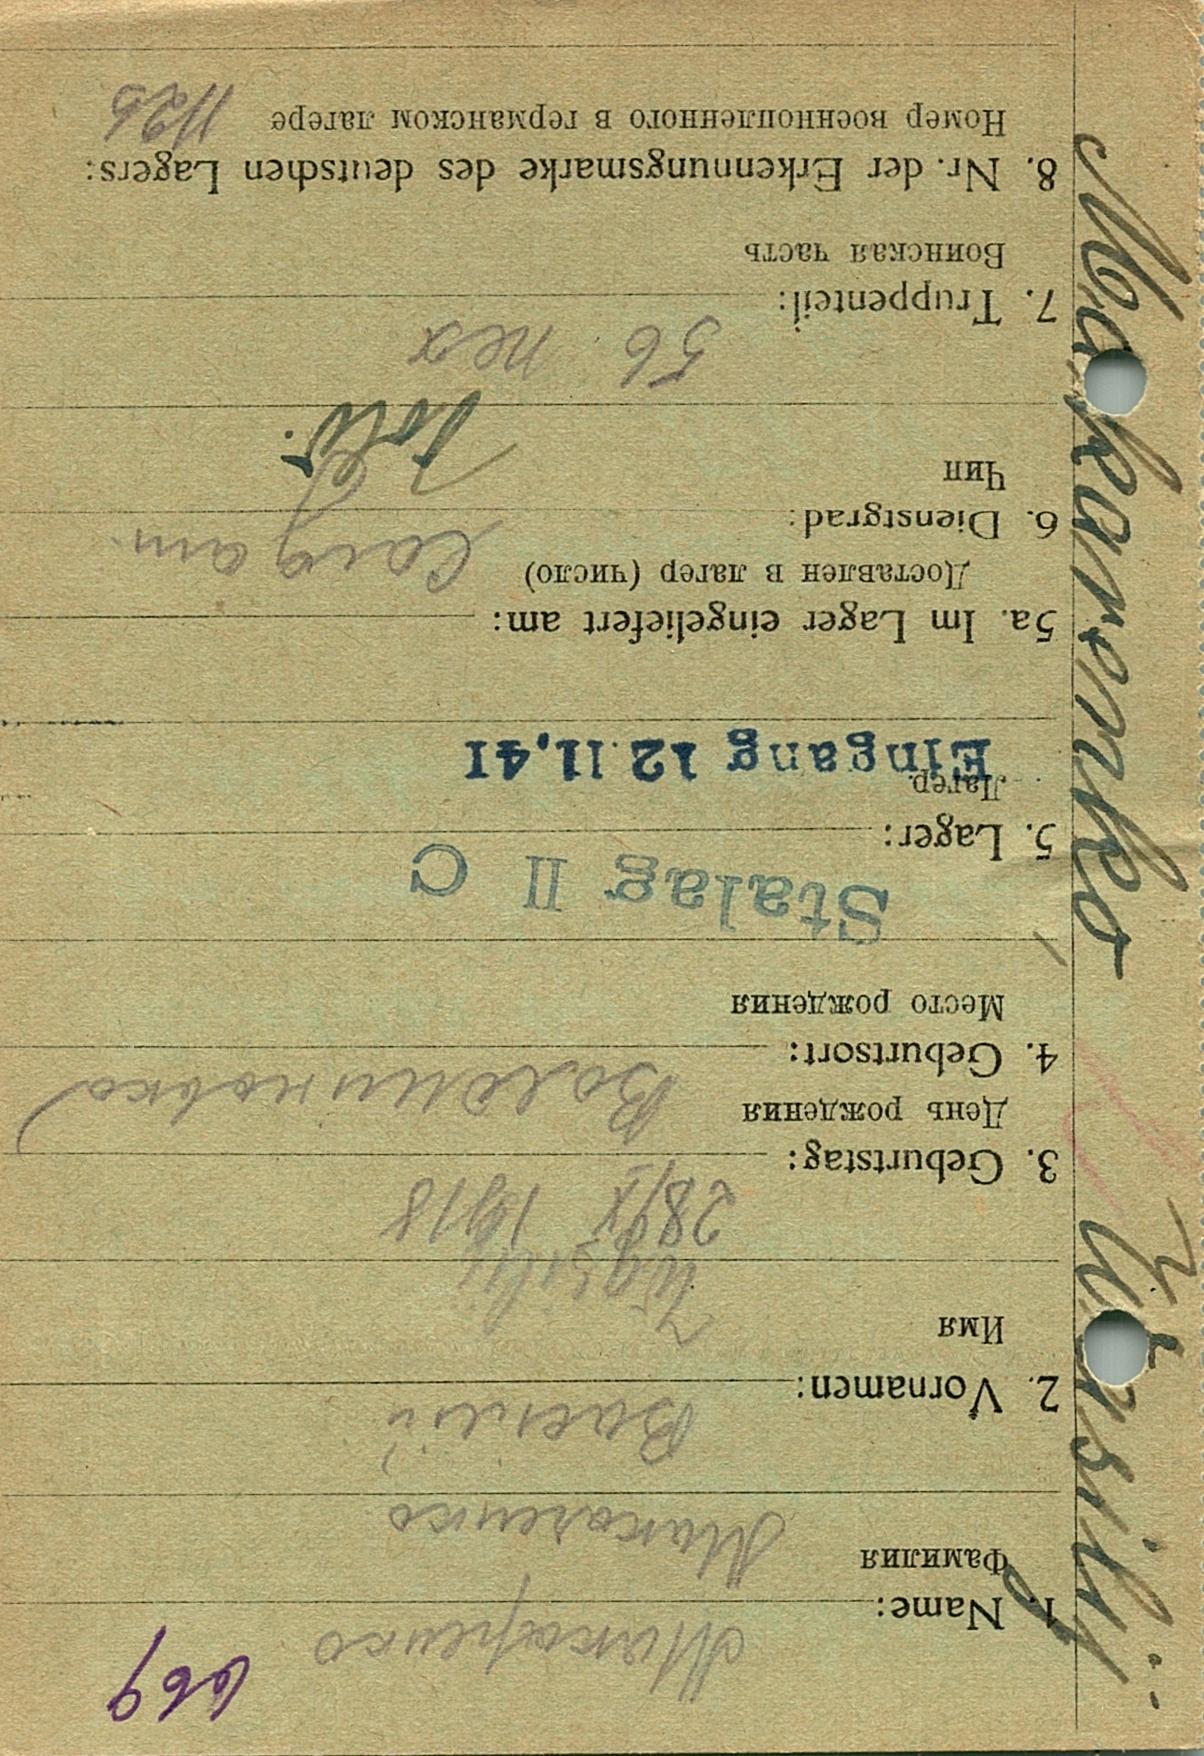 669
1. Name: Макаренко
Фамилия
Макаренко
2. Vornamen: Василий
Имя
Wasilij
3. Geburtstag: 28/X 1918
День рождения
4. Geburtsort:
Место рождения
Stalag II C
5. Lager:
Лагер
Eingang 12.11.41
5a. Im Lager eingeliefert am:
Доставлен в лагер (число)
6. Dienstgrad: Солдат
Чин
Sold.
56 пех
7. Truppenteil:
Воинская часть
8. Nr. der Erkennungsmarke des deutschen Lagers:
Номер военнопленного в германском лагере
Makarenko, Wasilij